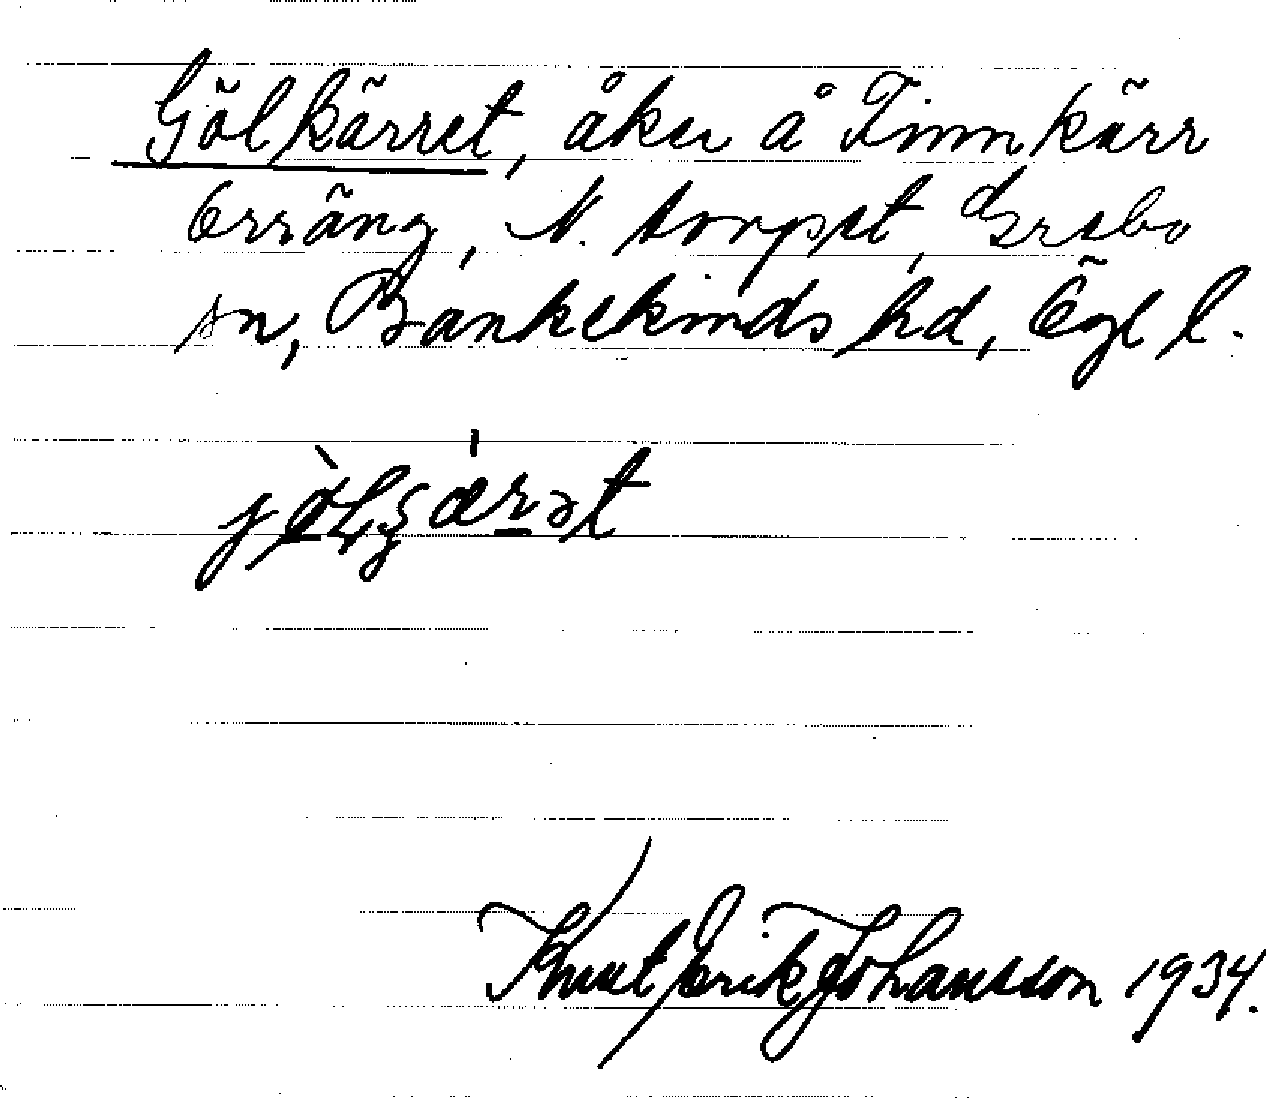 Gölkärret, åker å Finnkärr
Erräng, N. torpet, Grebo
sn, Bankekinds hd, Ögl l.
Knut Erik Johansson 1934.